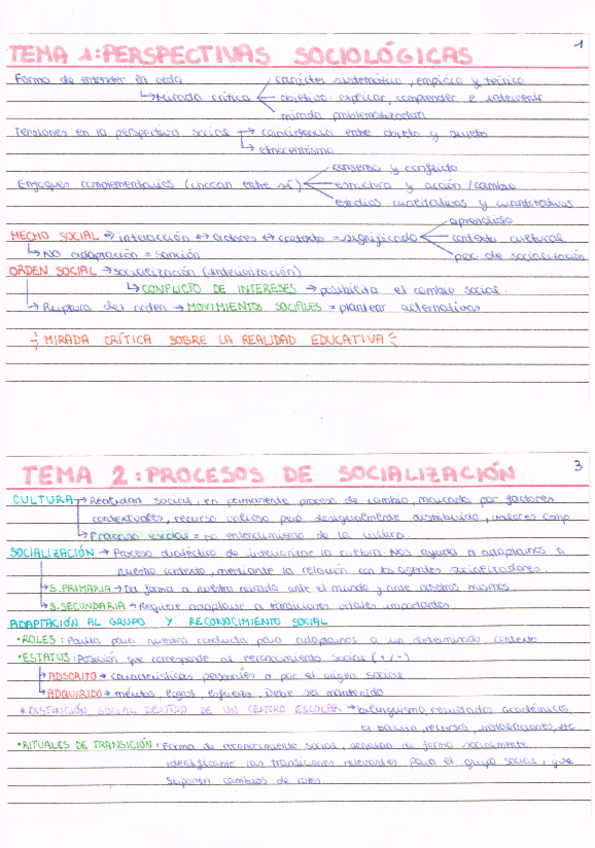 TEMA 1: PERSPECTIVAS SOCIOLÓGICAS 1
Forma de entender la vida
↳ Mirada crítica
carácter sistemático, empírico y teórico
objetivo: explicar, comprender e intervenir
mirada problematizadora
Tensiones en la perspectiva social → coincidencia entre objeto y sujeto
↳ etnocentrismo
Enfoques complementarios (chocan entre sí)
consenso y conflicto
estructura y acción / cambio
estudios cualitativos y cuantitativos
HECHO SOCIAL → interacción ↔ actores ↔ contexto = significado
aprendido
contexto cultural
per. de socialización
↳ NO adaptación = sanción
ORDEN SOCIAL → socialización (interiorización)
↳ CONFLICTO DE INTERESES → posibilita el cambio social.
↳ Ruptura del orden → MOVIMIENTOS SOCIALES = plantear alternativas
MIRADA CRÍTICA SOBRE LA REALIDAD EDUCATIVA
TEMA 2: PROCESOS DE SOCIALIZACIÓN 3
CULTURA → Realidad social, en permanente proceso de cambio, marcada por factores
contextuales, recurso valioso pero desigualmente distribuido, valores comp
↳ Fracaso escolar = no entendimiento de la cultura.
SOCIALIZACIÓN → Proceso dialéctico de interiorizar la cultura. Nos ayuda a adaptarnos a
nuestro contexto, mediante la relación con los agentes socializadores.
↳ S. PRIMARIA → Da forma a nuestra mirada ante el mundo y ante nosotros mismos.
↳ S. SECUNDARIA → Requiere adaptarse a transiciones vitales importantes.
ADAPTACIÓN AL GRUPO Y RECONOCIMIENTO SOCIAL
• ROLES: Pauta para nuestra conducta para adaptarnos a un determinado contexto.
• ESTATUS: Posición que corresponde al reconocimiento social (+/-)
↳ ADSCRITO → características personales o por el origen social
↳ ADQUIRIDO → méritos, logros, esfuerzo. Debe ser mantenido
* DISTINCIÓN SOCIAL DENTRO DE UN CENTRO ESCOLAR → bilingüismo, resultados académicos,
el barrio, recursos, instalaciones, etc
• RITUALES DE TRANSICIÓN: Forma de reconocimiento social, señalan de forma socialmente
identificante las transiciones relevantes para el grupo social, que
suponen cambios de roles.